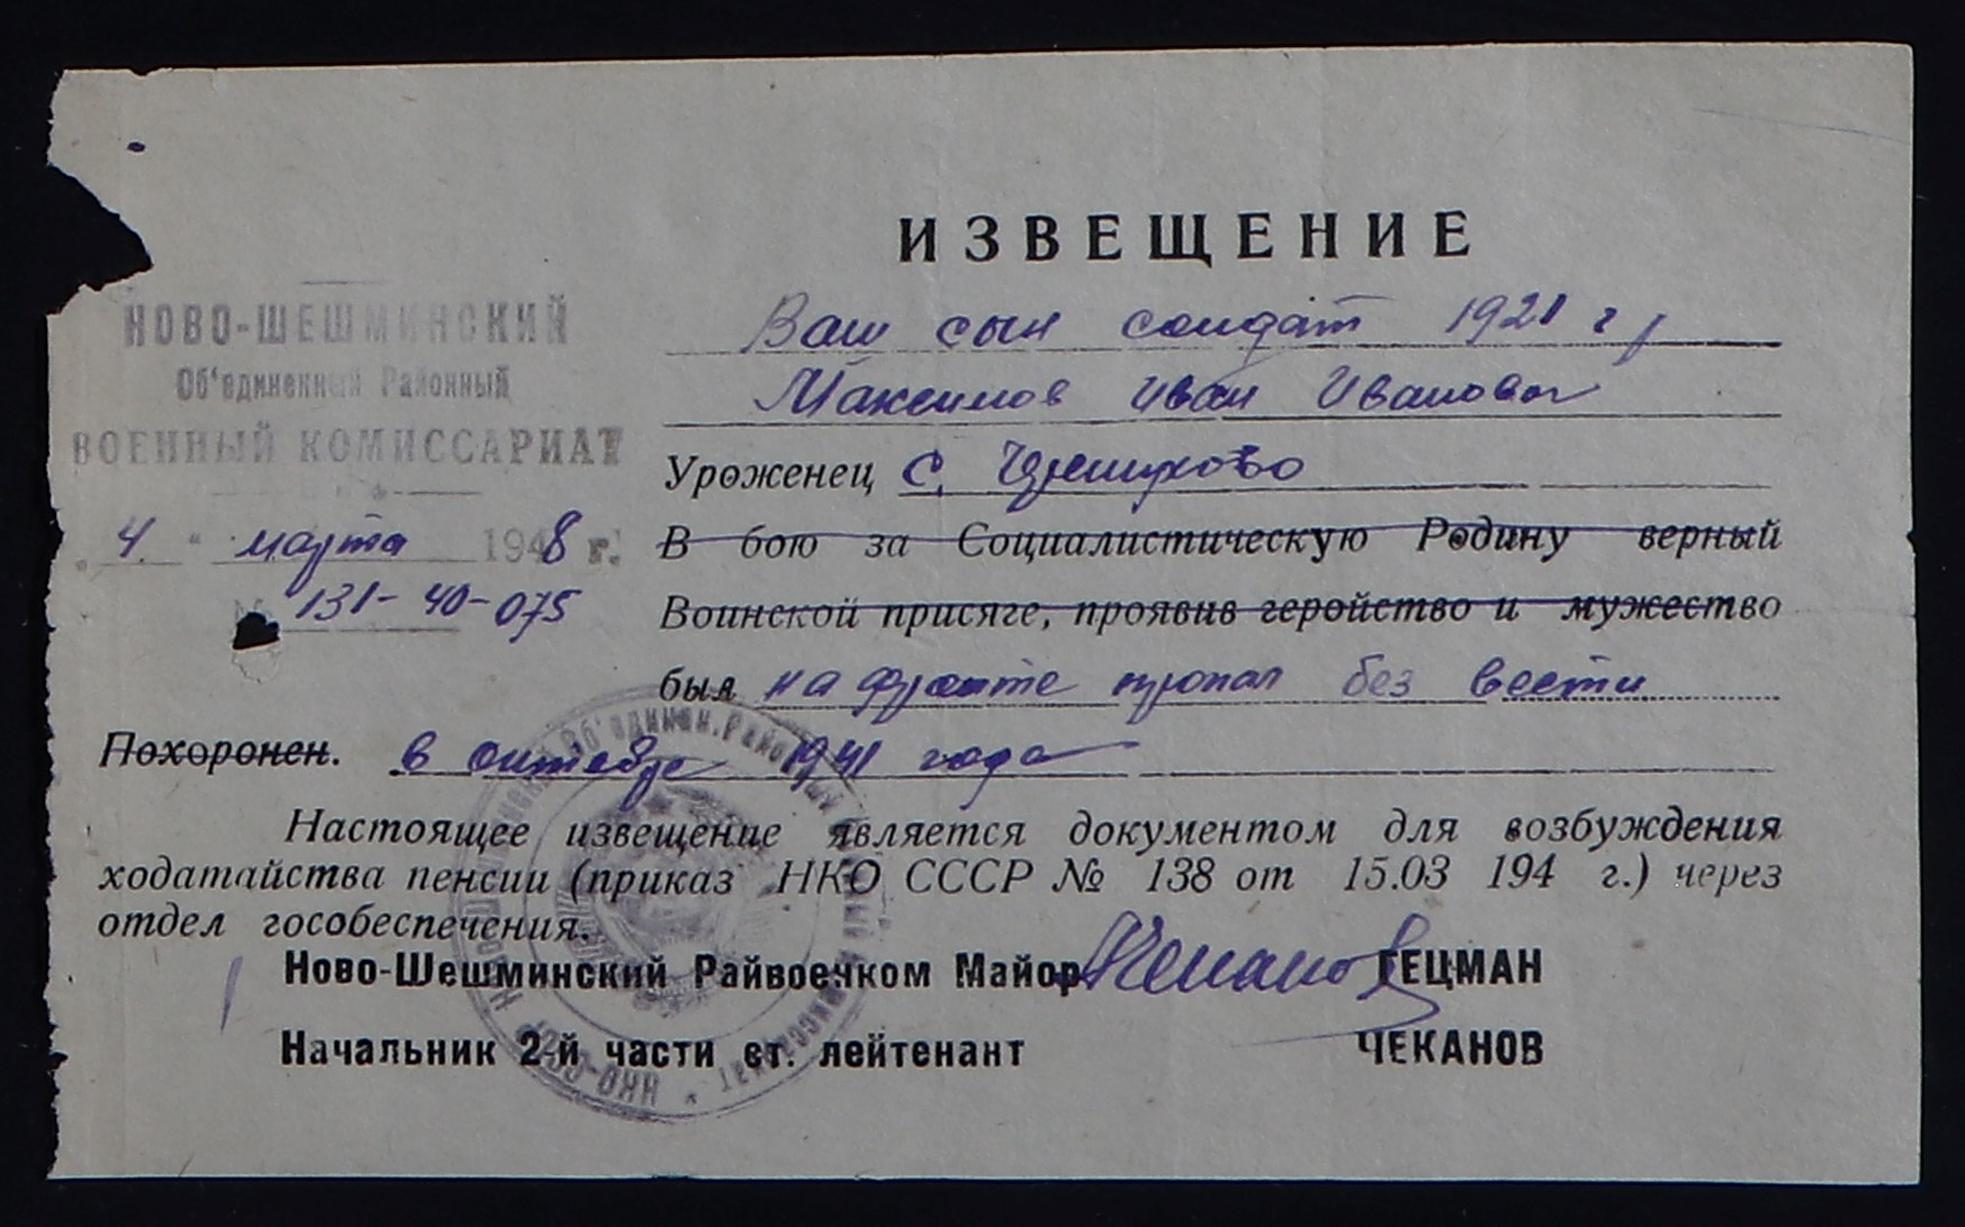 ИЗВЕЩЕНИЕ
НОВО-ШЕШМИНСКИЙ
Об'единенный Районный
ВОЕННЫЙ КОМИССАРИАТ
„4." марта 1948 г.
№ 131-40-075
Ваш сын солдат 1921 г р
Максимов Иван Иванович
Уроженец с.
В бою за Социалистическую Родину верный
Воинской присяге, проявив геройство и мужество
был на фронте пропал без вести
Похоронен. в октябре 1941 года
Настоящее извещение является документом для возбуждения
ходатайства пенсии (приказ НКО СССР № 138 от 15.03 194 г.) через
отдел гособеспечения.
Ново-Шешминский Райвоенком Майор Чеканов ГЕЦМАН
Начальник 2-й части ст. лейтенант ЧЕКАНОВ